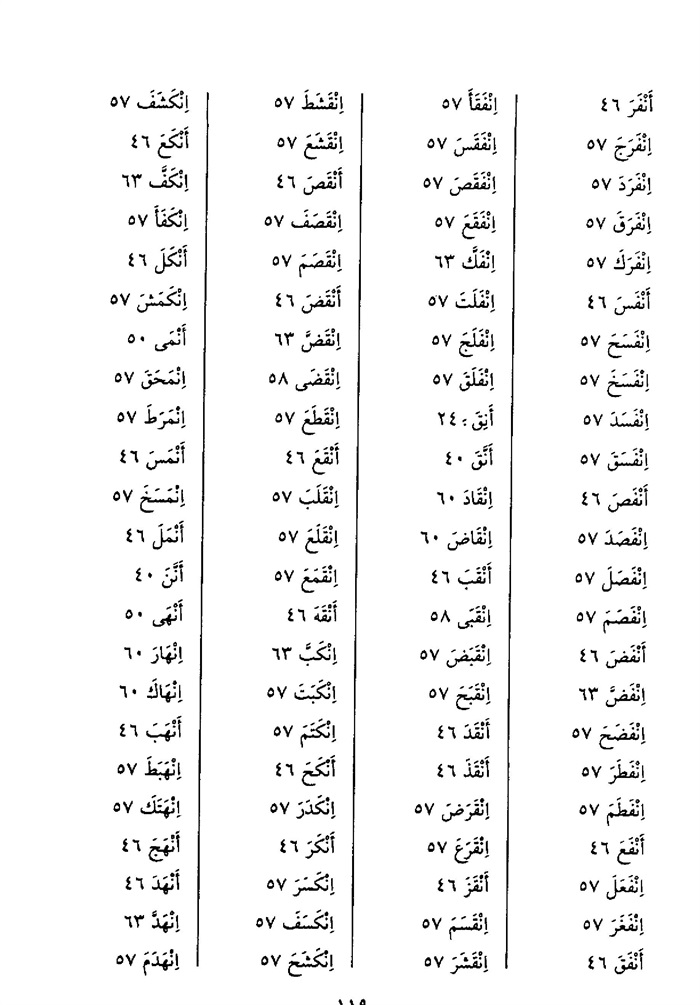 أَنْفَرَ ٤٦
اِنْفَرَجَ ٥٧
اِنْفَرَدَ ٥٧
اِنْفَرَقَ ٥٧
اِنْفَرَكَ ٥٧
أَنْفَسَ ٤٦
اِنْفَسَحَ ٥٧
اِنْفَسَخَ ٥٧
اِنْفَسَدَ ٥٧
اِنْفَسَقَ ٥٧
أَنْفَصَ ٤٦
اِنْفَصَدَ ٥٧
اِنْفَصَلَ ٥٧
اِنْفَصَمَ ٥٧
أَنْفَضَ ٤٦
اِنْفَضَّ ٦٣
اِنْفَضَحَ ٥٧
اِنْفَطَرَ ٥٧
اِنْفَطَمَ ٥٧
أَنْفَعَ ٤٦
اِنْفَعَلَ ٥٧
اِنْفَغَرَ ٥٧
أَنْفَقَ ٤٦
اِنْفَقَأَ ٥٧
اِنْفَقَسَ ٥٧
اِنْفَقَصَ ٥٧
اِنْفَقَعَ ٥٧
اِنْفَكَّ ٦٣
اِنْفَلَتَ ٥٧
اِنْفَلَجَ ٥٧
اِنْفَلَقَ ٥٧
أَنِقَ : ٢٤
أَنَّقَ ٤٠
اِنْقَادَ ٦٠
اِنْقَاضَ ٦٠
أَنْقَبَ ٤٦
اِنْقَبَى ٥٨
اِنْقَبَضَ ٥٧
اِنْقَبَحَ ٥٧
أَنْقَدَ ٤٦
أَنْقَذَ ٤٦
اِنْقَرَضَ ٥٧
اِنْقَرَعَ ٥٧
أَنْقَزَ ٤٦
اِنْقَسَمَ ٥٧
اِنْقَشَرَ ٥٧
اِنْقَشَطَ ٥٧
اِنْقَشَعَ ٥٧
أَنْقَصَ ٤٦
اِنْقَصَفَ ٥٧
اِنْقَصَمَ ٥٧
أَنْقَضَ ٤٦
اِنْقَضَّ ٦٣
اِنْقَضَى ٥٨
اِنْقَطَعَ ٥٧
أَنْقَعَ ٤٦
اِنْقَلَبَ ٥٧
اِنْقَلَعَ ٥٧
اِنْقَمَعَ ٥٧
أَنْقَهَ ٤٦
اِنْكَبَّ ٦٣
اِنْكَبَتَ ٥٧
اِنْكَتَمَ ٥٧
أَنْكَحَ ٤٦
اِنْكَدَرَ ٥٧
أَنْكَرَ ٤٦
اِنْكَسَرَ ٥٧
اِنْكَسَفَ ٥٧
اِنْكَشَحَ ٥٧
اِنْكَشَفَ ٥٧
أَنْكَعَ ٤٦
اِنْكَفَّ ٦٣
اِنْكَفَأَ ٥٧
أَنْكَلَ ٤٦
اِنْكَمَشَ ٥٧
أَنْمَى ٥٠
اِنْمَحَقَ ٥٧
اِنْمَرَطَ ٥٧
أَنْمَسَ ٤٦
اِنْمَسَخَ ٥٧
أَنْمَلَ ٤٦
أَنَّنَ ٤٠
أَنْهَى ٥٠
اِنْهَارَ ٦٠
اِنْهَاكَ ٦٠
أَنْهَبَ ٤٦
اِنْهَبَطَ ٥٧
اِنْهَتَكَ ٥٧
أَنْهَجَ ٤٦
أَنْهَدَ ٤٦
اِنْهَدَّ ٦٣
اِنْهَدَمَ ٥٧
١١٩